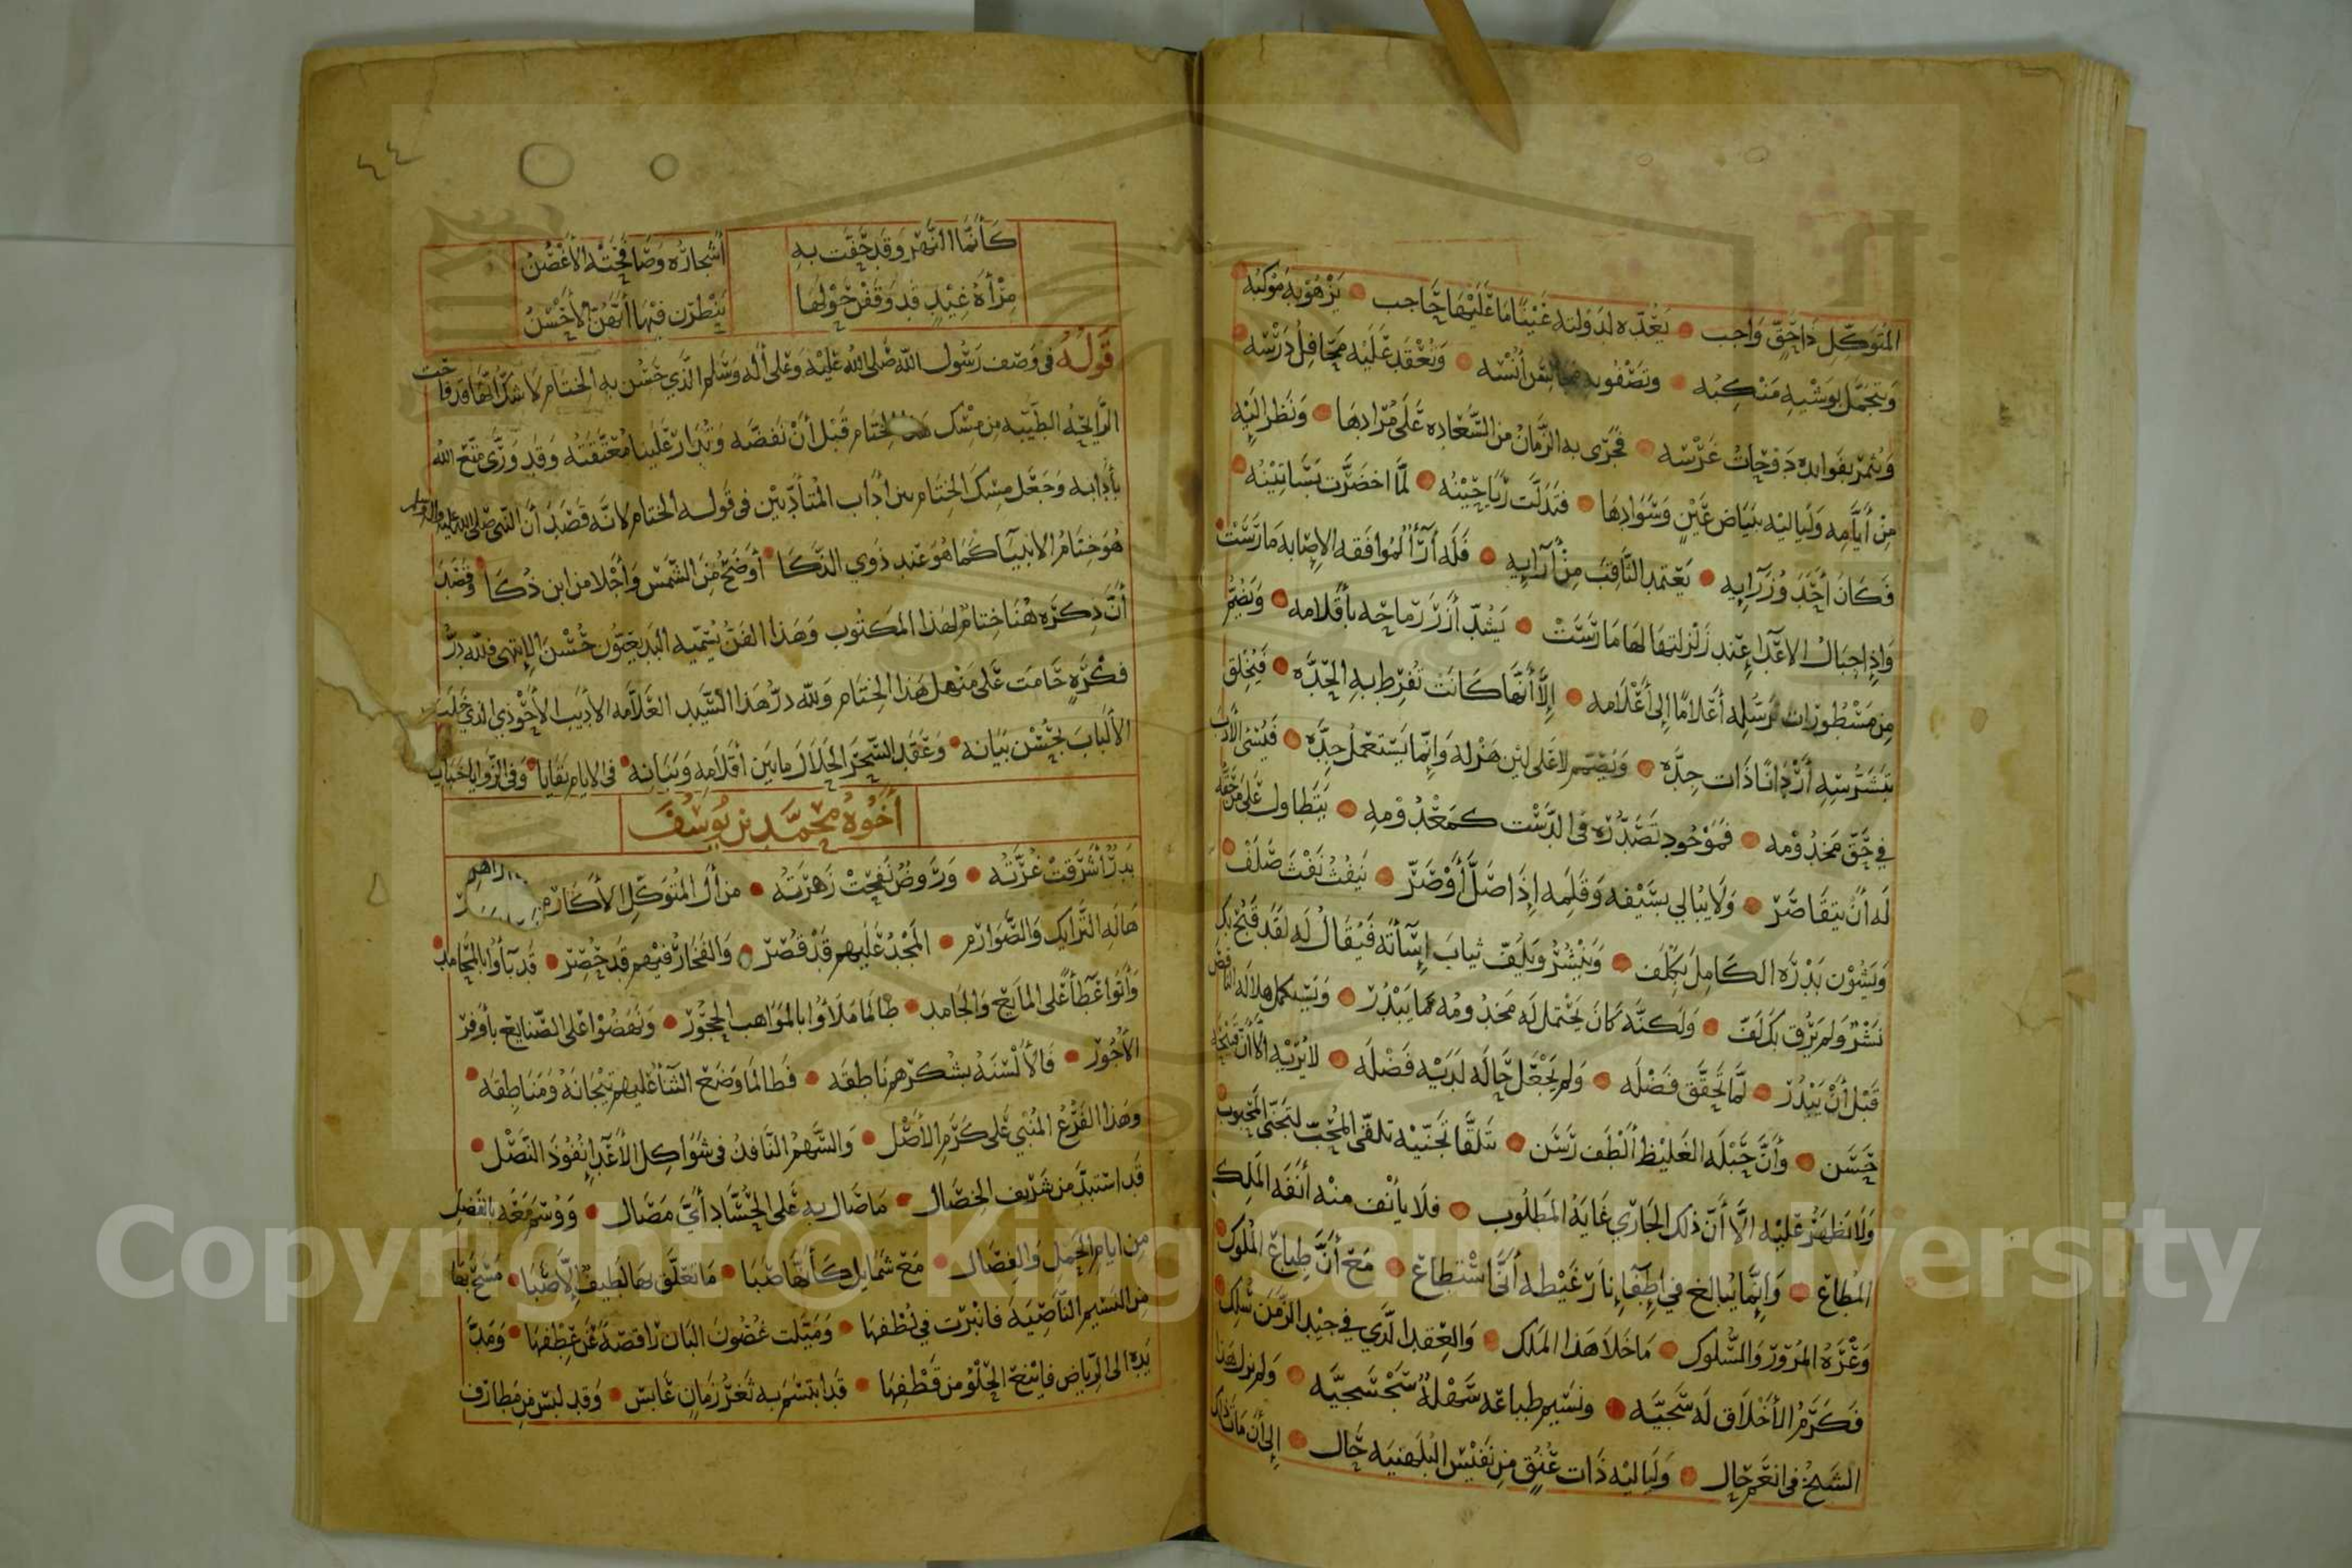 المتوكل ذا حق واجب • يعده لدولته عينا ما عليها حاجب • يزهو به موكبه •
ويتجمل بوشيه منكبه • وتصفو به أنسه • وتعقد عليه محافل درسه •
ويثمر بفوايده دوحات غرسه • فجرى به الزمان من السعاده على مرادها • ونظر اليه
من أيامه ولياليه ببياض عين وسوادها • فتدلت رياحينه • لما اخضرت بساتينه •
فكان أحد وزرآيه • يعتمد الثاقب من أرآيه • فله أرآ لموافقه الإصابه مارست •
وإذا جبال الاعدا عند زلزلتها لها ما رست • يشد أزر رماحه بأقلامه • ويضم
من مسطورات ترسله أعلاما إلى أعلامه • إلا أنها كانت تفرط به الحده • فيخلق
بتشرسه أردانا ذات جده • ويصمم لا على لين هزله وإنما يستعمل جده • فينسى الأدب
في حق مخدومه • فموجود تصدره في الدست كمعدومه • يتطاول على من حقه
له أن يتقاصر • ولا يبالي بسيفه وقلمه إذا صل أو صر • ينفث نفث صلف •
ويشون بدره الكامل بكلف • وينشر ويلف ثياب إسأته فيقال له لقد قبح بك
نشر ولم يرق بك لف • ولكنه كان يحتمل له مخدومه مما يبدر • ويستكمل هلاله الناقص
قبل أن يبدر • لما تحقق فضله • ولم يجعل حاله لديه فضله • لا يريه الا أن قبحه
حسن • وأن حبله الغليظ ألطف رسن • يتلقا تجنيه تلقى المحب لتجنى المحبوب
ولا يظهر عليه الا أن ذلك الجاري غاية المطلوب • فلا يأنف منه أنفه الملك
المطاع • وإنما يبالغ في إطفآء نار غيظه أنى استطاع • مع أن طباع الملوك •
وعره المرور والسلوك • ما خلا هذا الملك • والعقد الذي في جيد الزمن سلك •
فكرم الأخلاق له سجيه • ونسيم طباعه سهلة سجسجيه • ولم يزل هذا
الشيخ في انعم حال • ولياليه ذات عنق من نفيس البلهنيه حال • إلى أن مات ذلك
٤٤
كأنما النهر وقد حفت به أشجاره وصافحته الأغصن
مرأة غيد قد وقفن حولها ينظرن فيها أيهن الأحسن
قوله في وصف رسول الله صلى الله عليه وعلى أله وسلم الذي حسن به الختام لا شك انها قد فاحت
الرايحه الطيبه من مسك هذا الختام قبل أن نفضه وتدار علينا معتقته وقد ورى متع الله
بأدابه وجعل مسك الختام من اداب المتأدبين في قوله الختام لانه قصد أن النبي صلى الله عليه واله وسلم
هو ختام الانبيآ كما هو عند ذوي الذكا • أوضح من الشمس وأجلا من ابن ذكا • وقصد
أن ذكره هنا ختام لهذا المكتوب وهذا الفن يسميه البديعيون حسن الإنتهى فلله در
فكره حامت على منهل هذا الختام ولله در هذا السيد العلامه الأديب الأحوذي الذي خلب
الألباب بحسن بيانه • وعقد السحر الحلال ما بين أقلامه وبنانه • في الايام بقايا • وفي الزوايا خبايا
أخوه محمد بن يوسف
بدر أشرقت غرته • وروض نفحت زهرته • من أل المتوكل الأكارم
هاله الترايك والصوارم • المجد عليهم قد قصر • والفخار فيهم قد حصر • قد بآوا بالمحامد •
وأتوا عطآ على المايع والجامد • طالما ملأوا بالمواهب الحجور • ونهضوا على الصنايع بأوفر
الأجور • فالألسنه بشكرهم ناطقه • فطالما وضع الثنآ عليهم تيجانه ومناطقه •
وهذا الفرع المنبي على كرم الأصل • والسهم النافد في شواكل الأعدا نفوذ النصل •
قد استبد من شريف الخصال • ما صال به على الحساد أي مصال • ووسم معه بالفضل
من ايام الحمل والفصال • مع شمايل كأنها صبا • ما تعلق بها لطيف إلا صبا • مسح بها
من النسيم الناصيه فانبرت في لطفها • وميلت غصون البان راقصة عن عطفها • ومد
يده الى الرياض فاينع الحلو من قطفها • قد ابتسم به ثغر زمان عابس • وقد لبس من مطارف